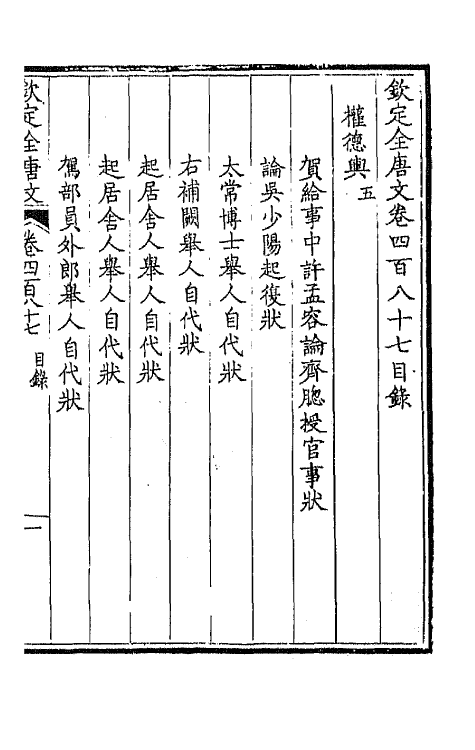 欽定全唐文卷四百八十七目錄
權德輿五
賀給事中許孟容論齊聰授官事狀
論吳少陽起復狀
太常博士舉人自代狀
右補闕舉人自代狀
起居舍人舉人自代狀
起居舍人舉人自代狀
駕部員外郎舉人自代狀
欽定全唐文 卷四百八十七 目錄 一